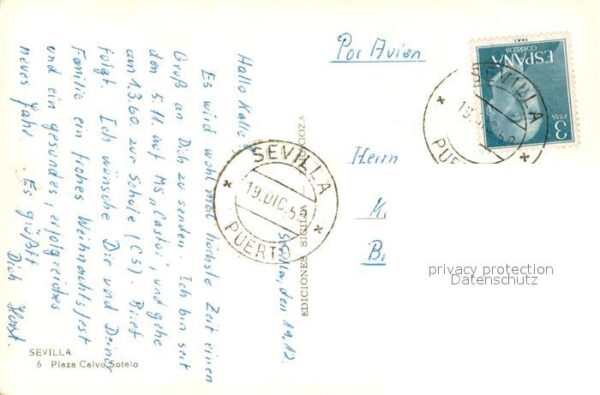 Hallo Kalle!
Sevilla, den 19.12.
Es wird wohl mal höchste Zeit einen
Gruß an Dich zu senden. Ich bin seit
den 5.11. auf Ms „Castor", und gehe
am 1.3.60 zur Schule (C5). Brief
folgt. Ich wünsche Dir und Deiner
Familie ein frohes Weihnachtsfest
und ein gesundes, erfolgreiches
neues Jahr. Es grüßt
Dich Horst.
SEVILLA
6 Plaza Calvo Sotelo
EDICIONES SICILIA
SEVILLA
19.DIC.5
PUERTO
Por Avion
ESPAÑA
CORREOS
3
PTAS
SEVILLA
PUERTO
Herrn
K.
B.
privacy protection
Datenschutz